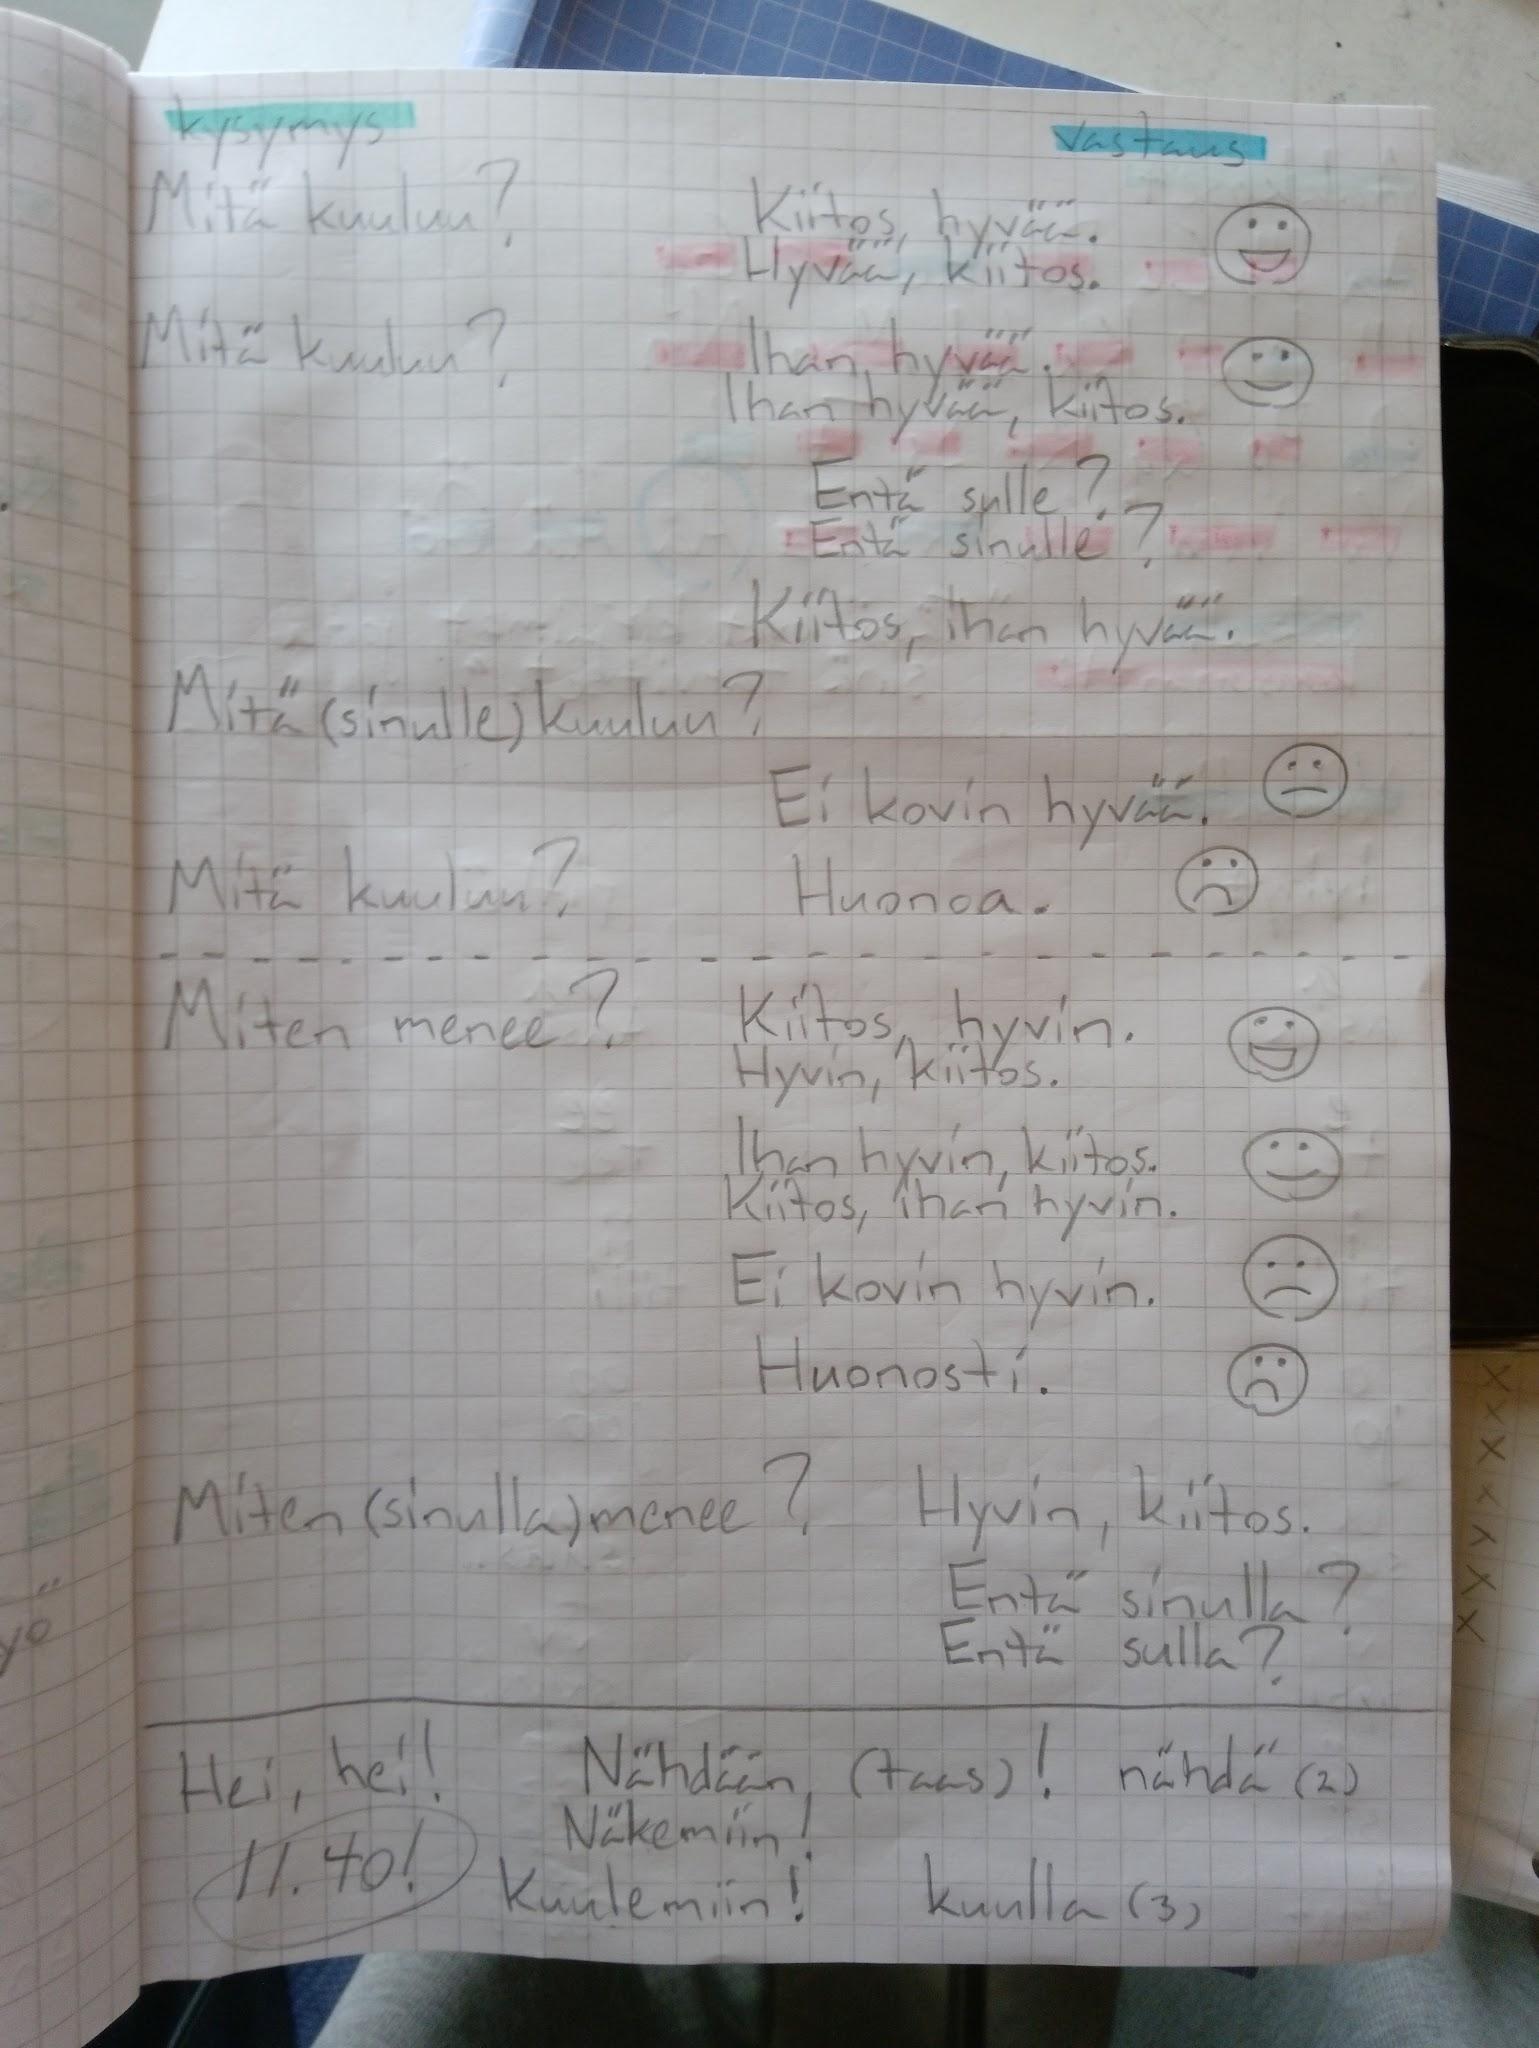 kysymys
vastaus
Mitä kuuluu?
Kiitos, hyvää.
Hyvää, kiitos.
Mitä kuuluu?
Ihan hyvää.
Ihan hyvää, kiitos.
Entä sulle?
Entä sinulle?
Kiitos, ihan hyvää.
Mitä (sinulle) kuuluu?
Ei kovin hyvää.
Mitä kuuluu?
Huonoa.
Miten menee?
Kiitos, hyvin.
Hyvin, kiitos.
Ihan hyvin, kiitos.
Kiitos, ihan hyvin.
Ei kovin hyvin.
Huonosti.
Miten (sinulla) menee?
Hyvin, kiitos.
Entä sinulla?
Entä sulla?
Hei, hei!
Nähdään, (taas)!
nähdä (2)
Näkemiin!
11.40!
Kuulemiin!
kuulla (3)
yö
x
x
x
x
x
x
x